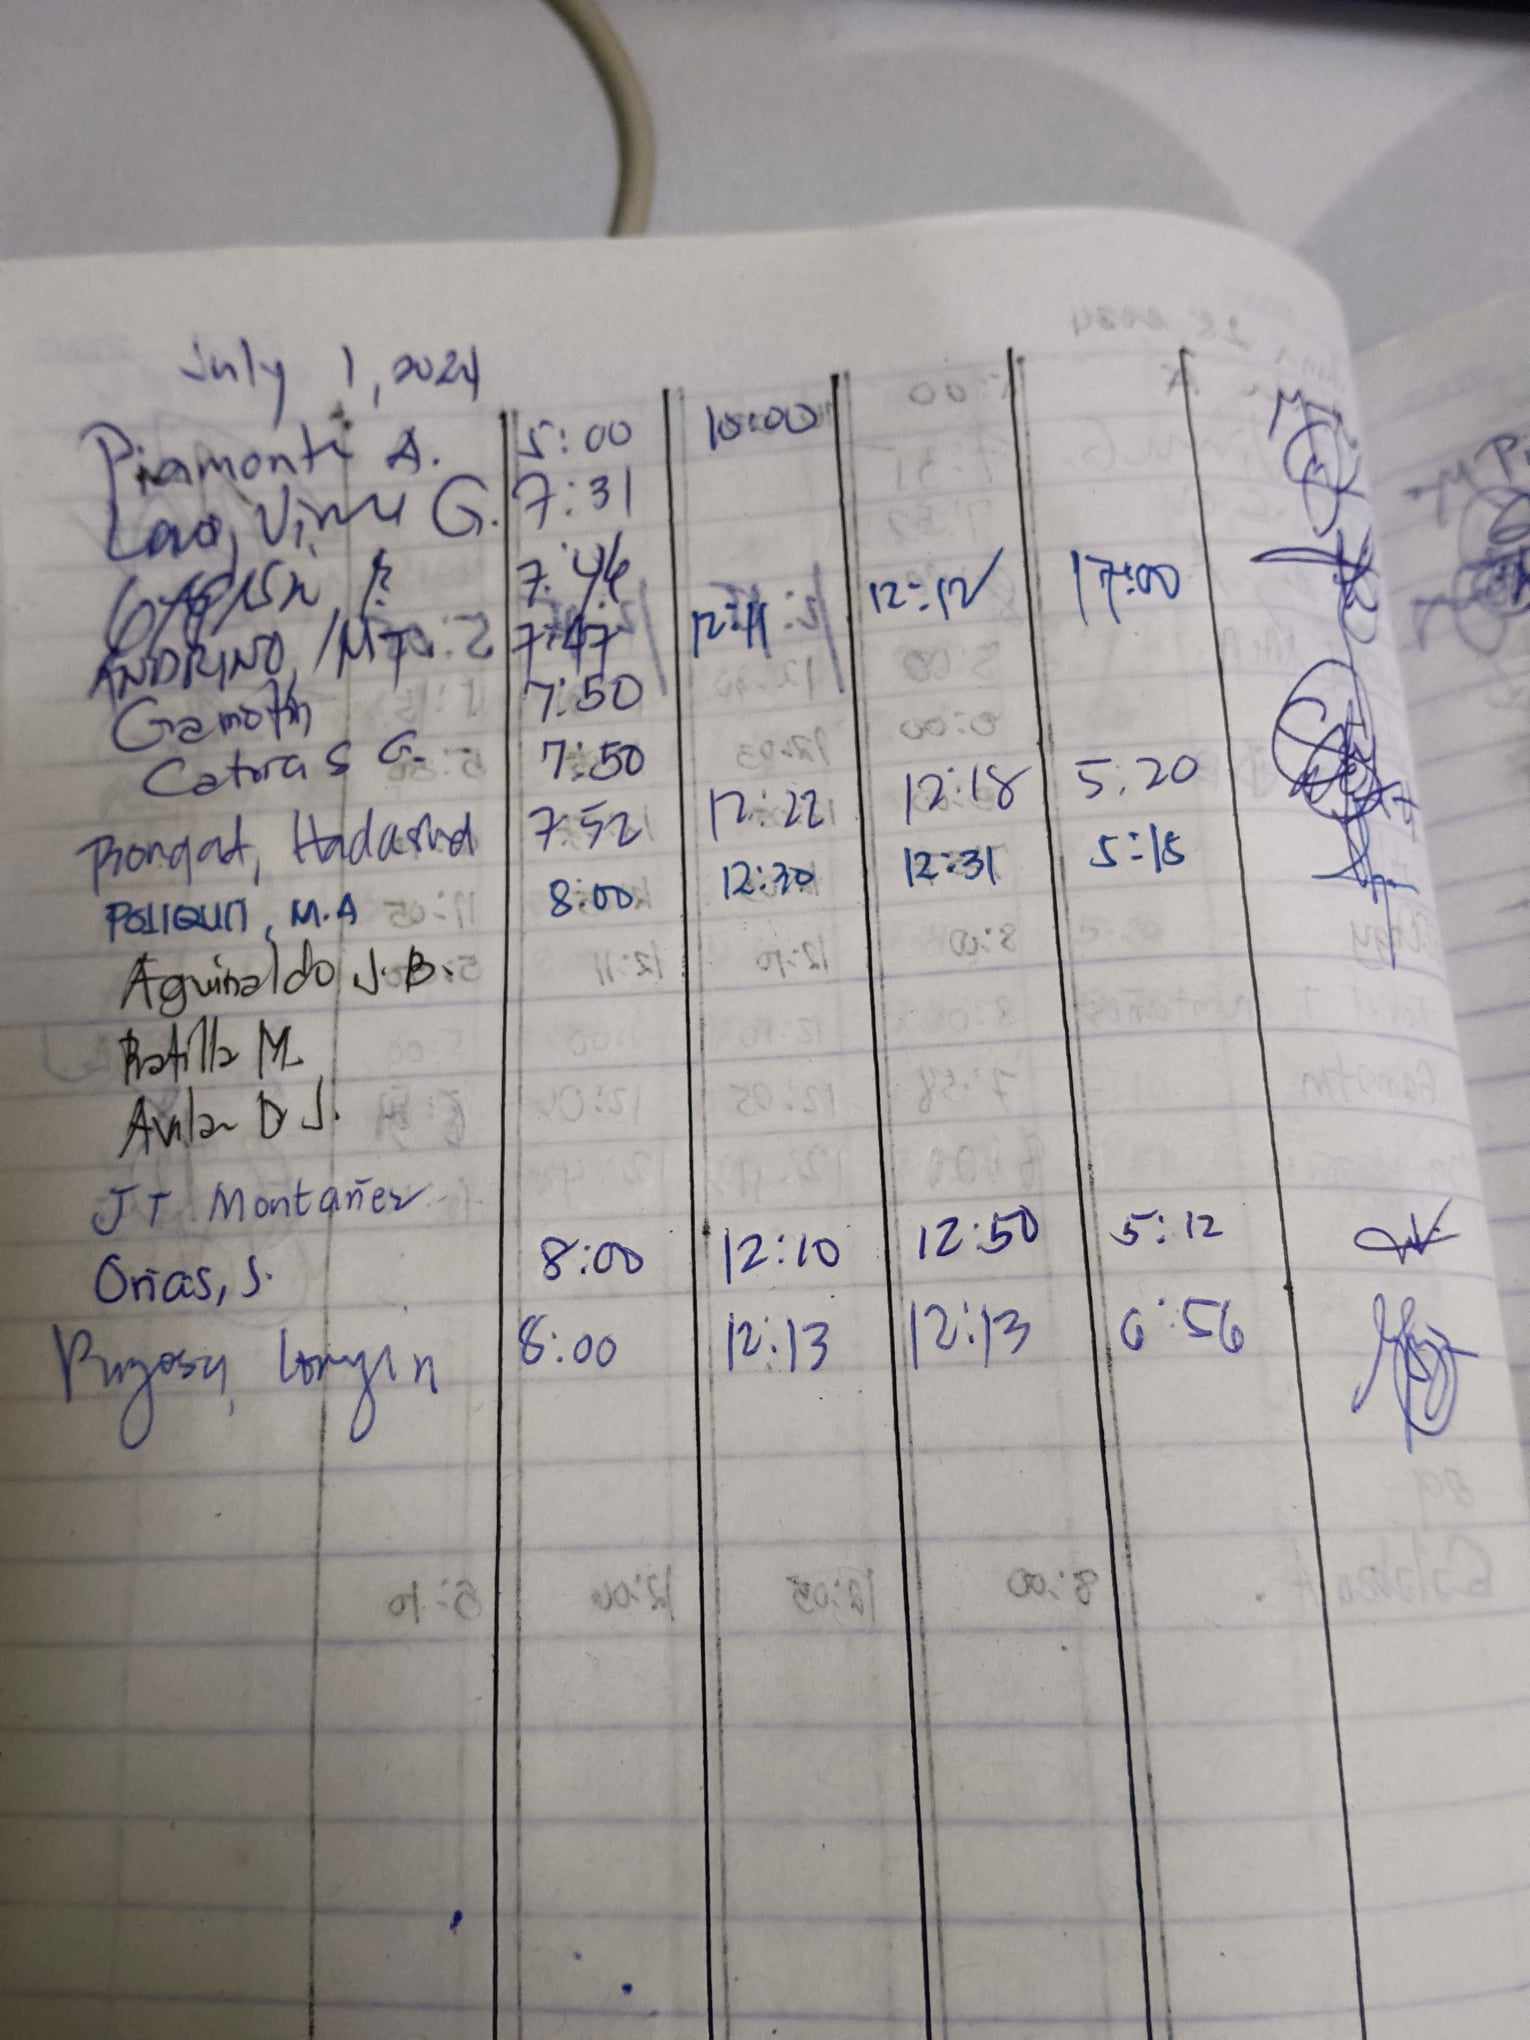 July 1, 2024
Piamonte A. 5:00 10:00
Lao, G. 7:31
7:46
ANDRINO, MJ 7:47 12:11 12:12 17:00
Gamotin 7:50
Catura S G. 7:50
Bongat, Hadassah 7:52 12:22 12:18 5:20
POLIQUIT, M.A 8:00 12:30 12:31 5:15
Aguinaldo J.B.
Batilla M.
Avila D J.
JT Montañez
Orias, S. 8:00 12:10 12:50 5:12
8:00 12:13 12:13 6:56